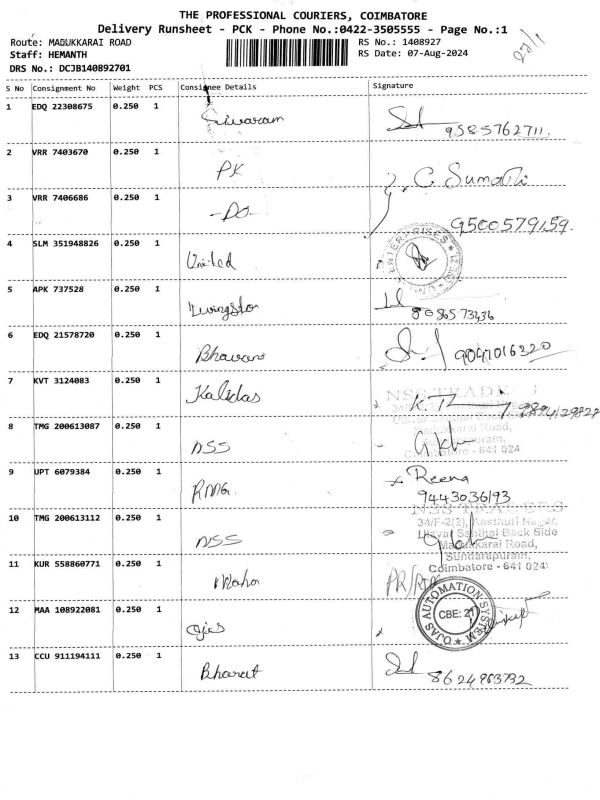 THE PROFESSIONAL COURIERS, COIMBATORE
Delivery Runsheet - PCK - Phone No.:0422-3505555 - Page No.:1
Route: MADUKKARAI ROAD
RS No.: 1408927
Staff: HEMANTH
RS Date: 07-Aug-2024
DRS No.: DCJB140892701
S No Consignment No Weight PCS Consignee Details Signature
1 EDQ 22308675 0.250 1 Sivaram
9585762711.
2 VRR 7403670 0.250 1 PK C Sumathi
3 VRR 7406686 0.250 1 -Do-
9500579159.
4 SLM 351948826 0.250 1 United ENTERPRISES
5 APK 737528 0.250 1 Livingston
8086573436
6 EDQ 21578720 0.250 1 Bhavani
9041016320
7 KVT 3124083 0.250 1 Kalidas
NSS TRADERS
9894129827
8 TMG 200613087 0.250 1 NSS
Madukkarai Road,
Sundarapuram,
Coimbatore - 641 024
9 UPT 6079384 0.250 1 RMG. Reena
9443036193
NSS TRADERS
10 TMG 200613112 0.250 1 NSS
34/F-2(2), Kasthuri Nagar,
Back Side
Madukkarai Road,
Sundarapuram,
Coimbatore - 641 024
11 KUR 558860771 0.250 1 Maha
12 MAA 108922081 0.250 1 Ojas
OJAS AUTOMATION SYSTEM
CBE: 21
13 CCU 911194111 0.250 1 Bharat
8624963732